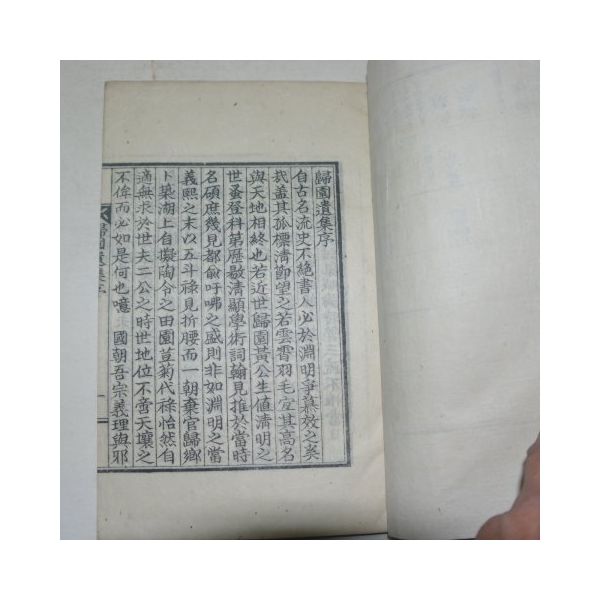 歸園遺集序
自古名流史不絶書人必於淵明爭慕效之矣
哉盖其孤標清節望之若雲霄羽毛宜其高名
與天地相終也若近世歸園黃公生値清明之
世蚤登科第歷敭清顯學術詞翰見推於當時
名碩庶幾見都兪吁咈之盛則非如淵明之當
義熙之末以五斗祿見折腰而一朝棄官歸鄉
卜築湖上自擬陶令之田園荳菊代祿怡然自
適無求於世夫二公之時世地位不啻天壤之
不侔而必如是何也噫 國朝吾宗義理與邪
歸園遺集序